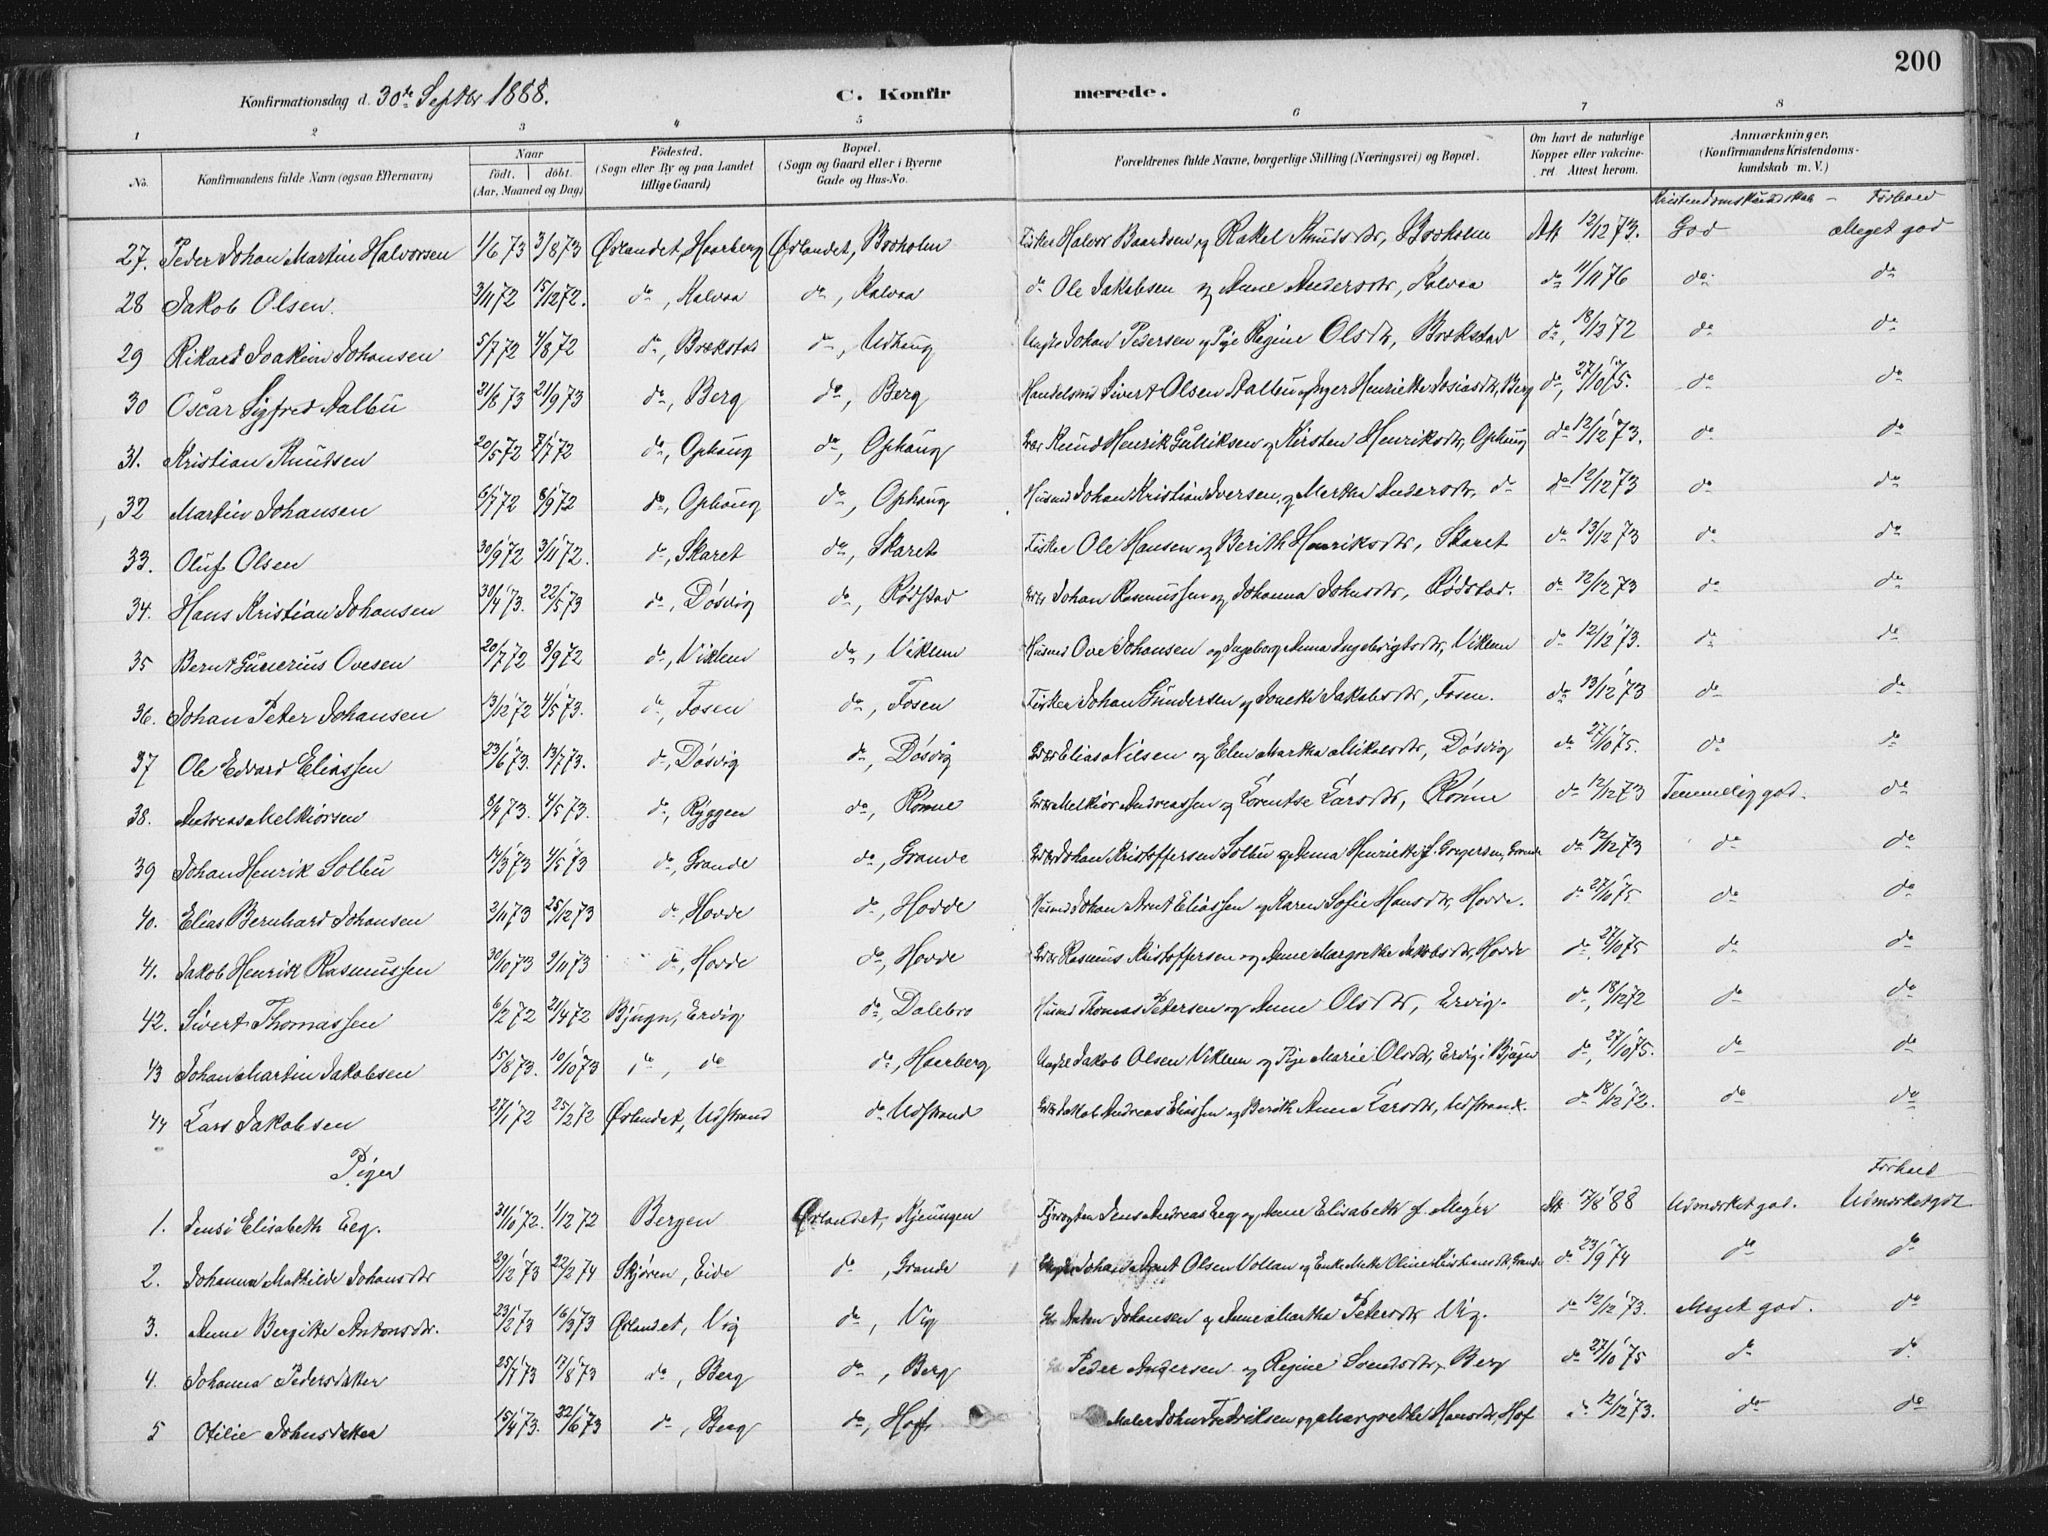 200
Konfirmationsdag d. 30te Septbr 1888. C. Konfirmerede.
1 2 3 4 5 6 7 8
No. Konfirmandens fulde Navn (ogsaa Efternavn) Naar födt. döbt. (Aar, Maaned og Dag) Födested. (Sogn eller By og paa Landet tillige Gaard) Bopæl. (Sogn og Gaard eller i Byerne Gade og Hus-No. Forældrenes fulde Navne, borgerlige Stilling (Næringsvei) og Bopæl. Om havt de naturlige Kopper eller vakcineret Attest herom. Anmærkninger. (Konfirmandens Kristendomskundskab m. V.)
Kristendomskundskab - Forhold
27. Peder Johan Martin Halvorsen 1/6 73 3/8 73 Ørlandet, Haarberg Ørlandet, Booholm Fisker Halvor Baardsen og Rakel Knudsdtr, Booholm Att 12/12 73. God Meget god
28 Jakob Olsen. 3/11 72 15/12 72. do, Kalvaa do, Kalvaa do Ole Jakobsen og Anne Andersdtr, Kalvaa do 11/11 76 do do
29 Rikard Joakim Johansen 5/7 72 4/8 72 do, Brækstad do, Udhaug Ungkl Johan Pedersen og Pige Regine Olsdtr, Brækstad do, 18/12 72 do do
30 Oscar Sigfred Aalbu 21/8 73 21/9 73 do, Berg do, Berg Handelsmd Sivert Olsen Aalbu og Inger Henriette Josiasdtr, Berg do, 27/10 75. do do
31. Kristian Knudsen 20/5 72 7/7 72 do, Ophaug do, Ophaug Knud Henrik Gulliksen og Kirsten Henriksdtr, Ophaug do 12/12 73. do do
32 Martin Johansen 6/7 72 8/9 72 do, Ophaug do, Ophaug Husmd Johan Kristian Iversen og Martha Andersdtr, do do 12/12 73 do do
33. Oluf Olsen 30/9 72 3/11 72. do, Skaret do, Skaret Fisker Ole Hansen og Berith Henriksdtr, Skaret do 13/12 73 do do
34. Hans Kristian Johansen 30/4 73. 22/5 73 do, Døsvig do, Rødstad Johan Rasmussen og Johanna Johnsdtr, Rødstad. do 12/12 73 do do
35 Bernt Gunerius Ovesen 20/7 72 8/9 72 do, Viklem do, Viklem Husmd Ove Johansen og Ingeborg Anna Ingebrigtsdtr, Viklem do 12/12 73. do do
36. Johan Peter Johansen 13/12 72 4/5 73. do, Fosen do, Fosen Fisker Johan Gundersen og Jakobsdtr, Fosen. do 13/12 73 do do
37 Ole Edvard Eliassen 23/6 73. 13/7 73. do, Døsvig do, Døsvig Elias Nilsen og Elen Martha Mikalsdtr, Døsvig do 27/10 75. do do
38. Andreas Melkiorsen 8/4 73. 4/5 73. do, Ryggen do, Rønne Melkior Andreassen og Lorentse Larsdtr, Rønne do 12/12 73 Temmelig god. do
39 Johan Henrik Solbu 14/3 73 4/5 73 do, Grande do, Grande Johan Kristoffersen Solbu og Anna Henriette f. Gregersen, Grande do 12/12 73 do do
40. Elias Bernhard Johansen 2/11 73 25/12 73 do, Hovde do, Hovde Husmd Johan Arnt Eliassen og Karen Sofie Hansdtr, Hovde. do 27/10 75 do do
41. Jakob Henrik Rasmussen 30/10 73 9/11 73 do, Hovde do, Hovde Rasmus Kristoffersen og Anne Margrethe Jakobsdtr, Hovde do, 27/10 75 do do
42. Sivert Thomassen 6/2 72 21/4 72 Bjugn, Ervig do, Dalebro Husmd Thomas Petersen og Anne Olsdtr, Ervig. do, 18/12 72 do do
43 Johan Martin Jakobsen 15/8 73. 10/10 73 do, do do, Haerberg Ungkl Jakob Olsen Viklem og Pige Marie Olsdtr, Ervig i Bjugn do, 27/10 75. do do
44 Lars Jakobsen 27/1 72 25/2 72 Ørlandet, Udstrand do Udstrand Jakob Andreas Eliassen og Berith Anna Larsdtr, Udstrand. do 18/12 72. do do
Piger
Forhold
1. Jensi Elisabeth Eeg. 31/10 72. 1/12 72 Bergen Ørlandet, Kjeungen Fyrvogten Jens Andreas Eeg og Anne Elisabeth f. Meyer Att 17/8 88 Udmærket god. Udmærket god
2. Johanna Mathilde Johansdtr 29/12 73 22/2 74 Skjøren, Eide do, Grande Johan Arnt Olsen Vollan og Enke Mette Oline Kristiansdtr, Grande do 23/9 74 do do
3. Anne Bergitte Antonsdtr. 23/2 73 16/3 73 Ørlandet, Vig do, Vig Anton Johansen og Anne Martha Petersdtr Vig. do 12/12 73. Meget god. do
4. Johanna Pedersdatter 25/7 73 17/8 73 do, Berg do, Berg Peder Andersen og Regine Svendsdtr, Berg do 27/10 75 do do
5 Otilie Johnsdatter 15/4 73. 22/6 73 do, Berg do, Hoff Maler John Fredriksen og Margrethe Hansdtr, Hof do 12/12 73. do do